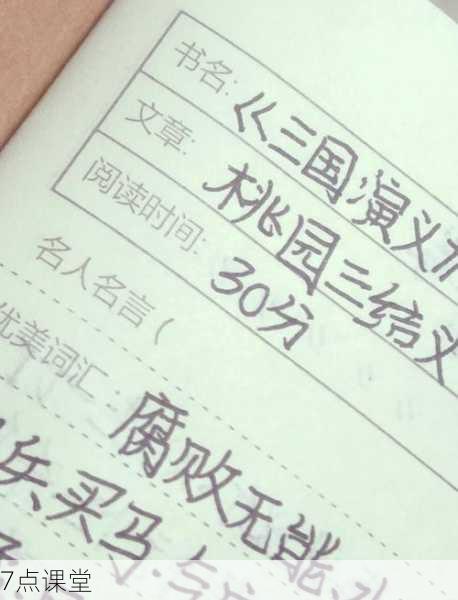 书名:《三国演义》
文章: 桃园三结义
阅读时间: 30分
名人名言(
优美词汇: 腐败无能
兵买马
7点课堂